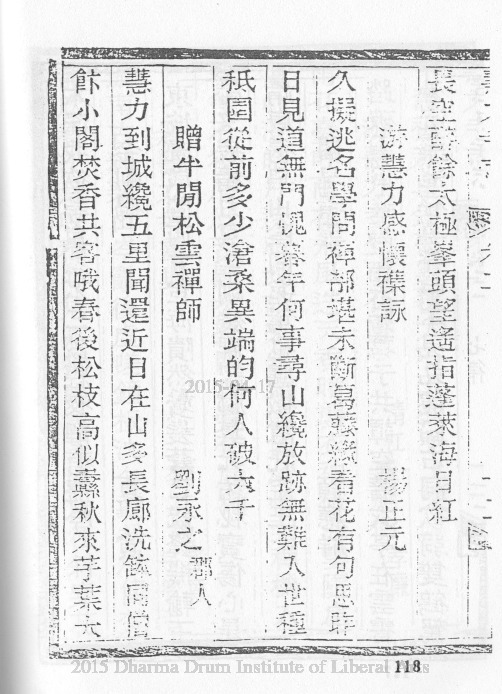 長空醉餘太極峯頭望遙指蓬萊海日紅
游慧力感懷襍詠 楊正元
久擬逃名學問禪那堪未斷葛藤緣看花有句思昨
日見道無門愧暮年何事尋山纔放跡無難入世種
祇園從前多少滄桑異端的何人破大千
贈半閒松雲禪師 劉永之 郡人
慧力到城纔五里聞還近日在山多長廊洗鉢同僧
飰小閣焚香共客哦春後松枝高似蠹秋來芋葉大
118
2015-04-17
2015 Dharma Drum Institute of Liberal Arts